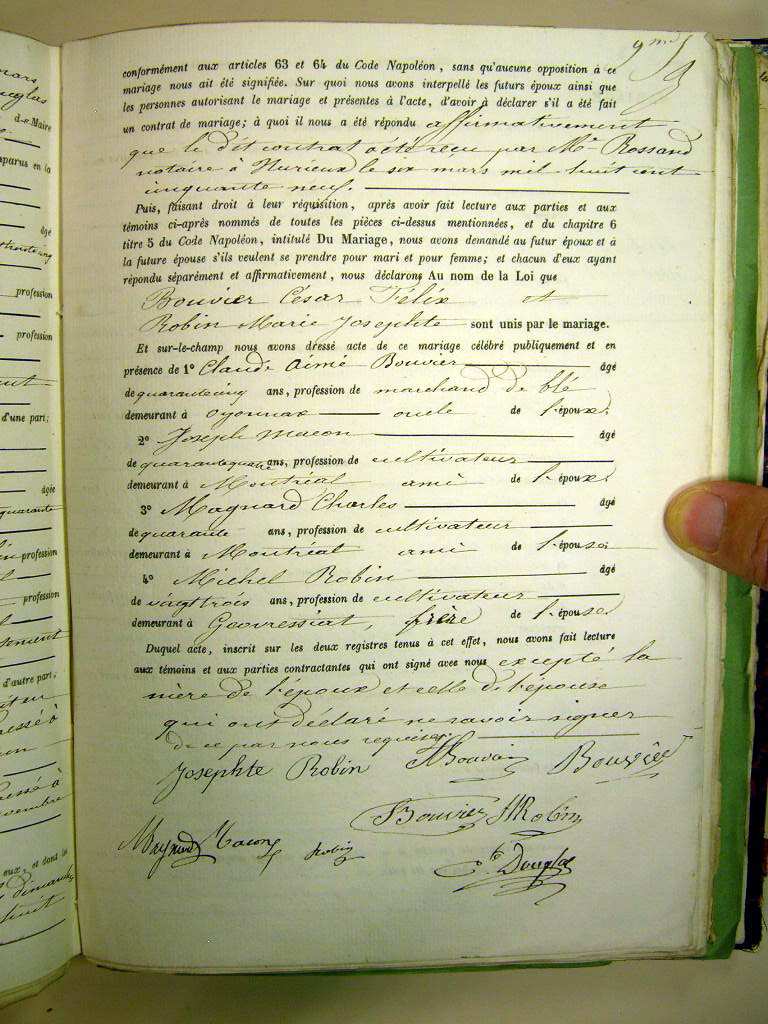 conformément aux articles 63 et 64 du Code Napoléon, sans qu'aucune opposition à ce
mariage nous ait été signifiée. Sur quoi nous avons interpellé les futurs époux ainsi que
les personnes autorisant le mariage et présentes à l'acte, d'avoir à déclarer s'il a été fait
un contrat de mariage; à quoi il nous a été répondu affirmativement
que le dit contrat a été reçu par Me Rossand
notaire à Nurieux le six mars mil huit cent
cinquante neuf.
Puis, faisant droit à leur réquisition, après avoir fait lecture aux parties et aux
témoins ci-après nommés de toutes les pièces ci-dessus mentionnées, et du chapitre 6
titre 5 du Code Napoléon, intitulé Du Mariage, nous avons demandé au futur époux et à
la future épouse s'ils veulent se prendre pour mari et pour femme; et chacun d'eux ayant
répondu séparément et affirmativement, nous déclarons Au nom de la Loi que
Bouvier César Félix et
Robin Marie Josephte sont unis par le mariage.
Et sur-le-champ nous avons dressé acte de ce mariage célébré publiquement et en
présence de 1° Claude Aimé Bouvier âgé
de quarante cinq ans, profession de marchand de blé
demeurant à oyonnax oncle de l'époux.
2° Joseph Macon âgé
de quarante quatre ans, profession de cultivateur
demeurant à Montréal ami de l'époux.
3° Magnard Charles âgé
de quarante ans, profession de cultivateur
demeurant à Montréal ami de l'épouse.
4° Michel Robin âgé
de vingt trois ans, profession de cultivateur
demeurant à Geovressiat, frère de l'épouse
Duquel acte, inscrit sur les deux registres tenus à cet effet, nous avons fait lecture
aux témoins et aux parties contractantes qui ont signé avec nous excepté la
mère de l'époux et celle de l'épouse
qui ont déclaré ne savoir signer
de ce par nous requises.
Josephte Robin Bouvier
Bouvier Robin
Magnard Macon Robin
Douglas